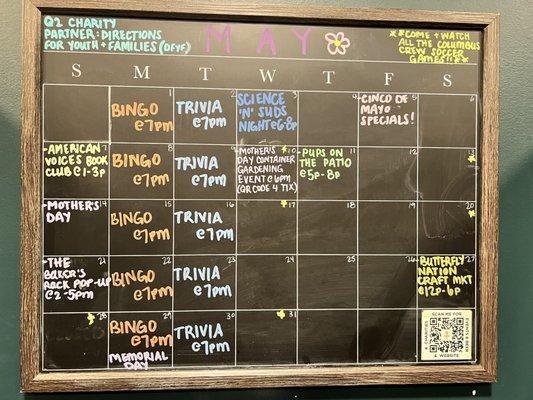 Q2 CHARITY
PARTNER: DIRECTIONS
FOR YOUTH + FAMILIES (DFYF)
MAY
**COME + WATCH
ALL THE COLUMBUS
CREW SOCCER
GAMES!!**
S M T W T F S
1
BINGO
@7PM
2
TRIVIA
@7PM
3
SCIENCE
'N' SUDS
NIGHT @6-8P
4
5
-CINCO DE
MAYO
SPECIALS!
6
7
-AMERICAN
VOICES BOOK
CLUB @1-3P
8
BINGO
@7PM
9
TRIVIA
@7PM
10
MOTHER'S
DAY CONTAINER
GARDENING
EVENT @6PM
(QR CODE 4 TIX)
11
PUPS ON
THE PATIO
@5P-8P
12
13
14
-MOTHER'S
DAY
15
BINGO
@7PM
16
TRIVIA
@7PM
17
18
19
20
21
-THE
BAKER'S
RACK POP-UP
@2-5PM
22
BINGO
@7PM
23
TRIVIA
@7PM
24
25
26
27
BUTTERFLY
NATION
CRAFT MKT
@12P-6P
28
29
BINGO
@7PM
MEMORIAL
DAY
30
TRIVIA
@7PM
31
SCAN ME FOR
& WEBSITE